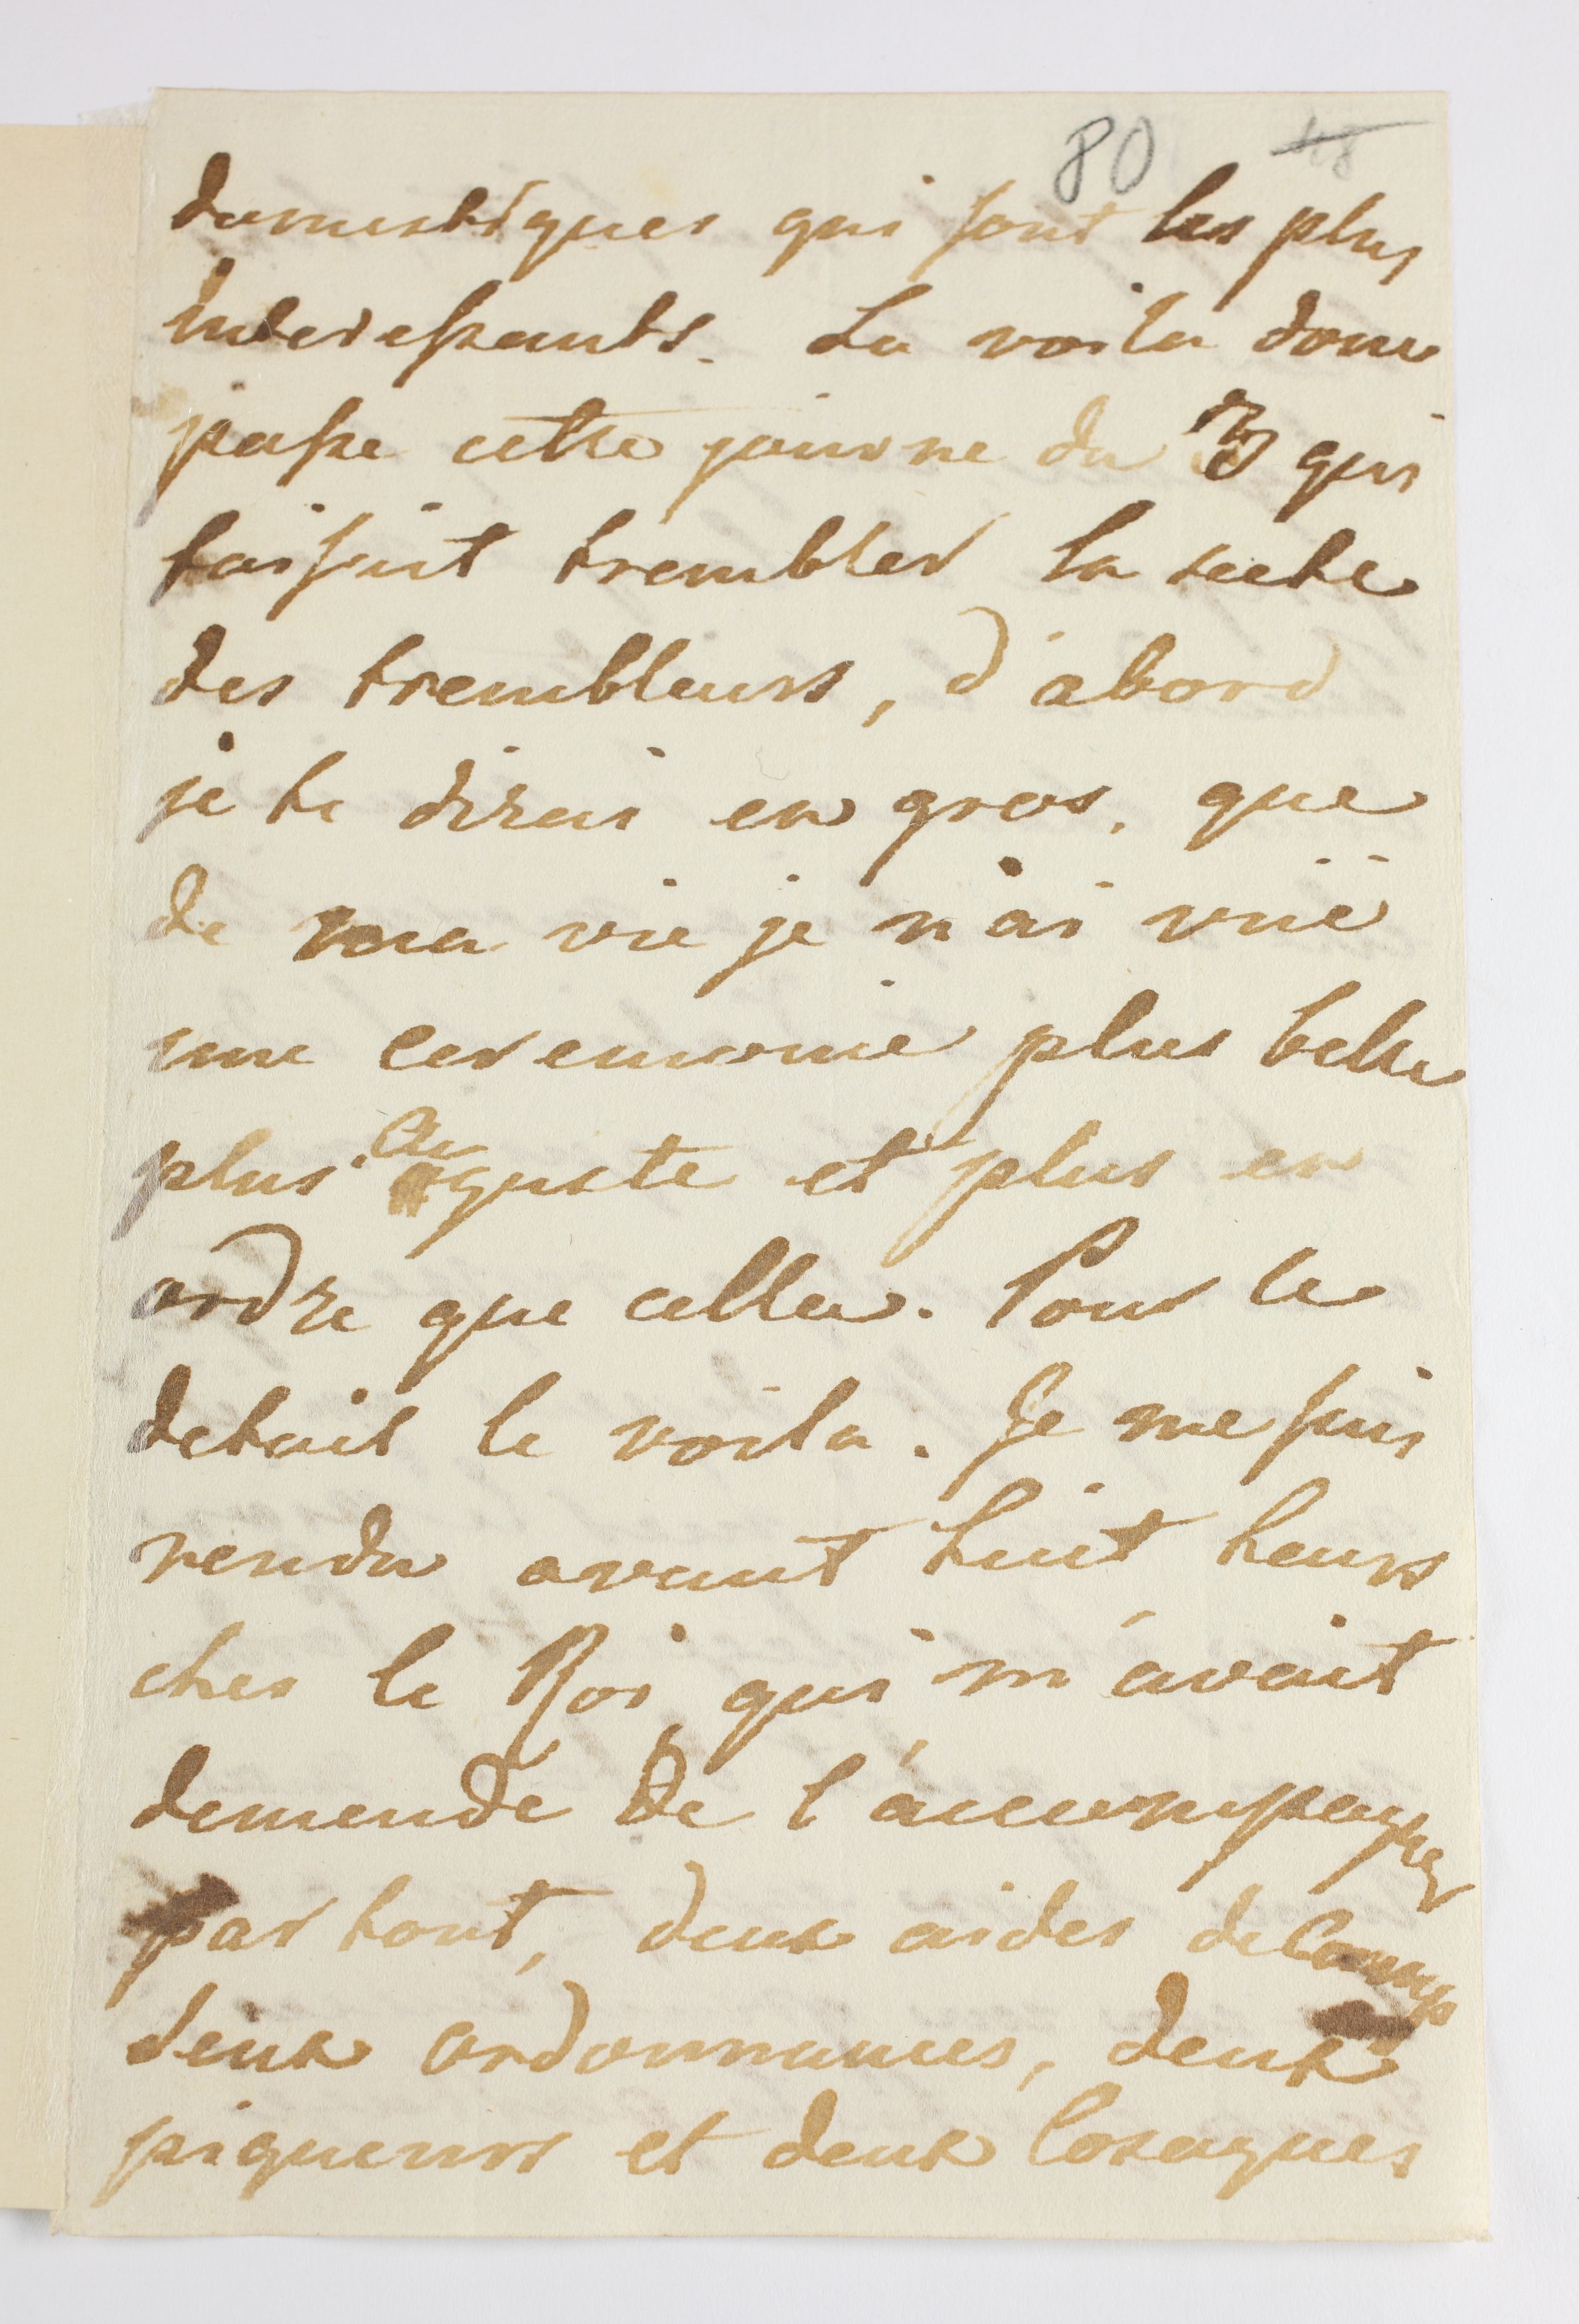 80 48
domestiques qui sont les plus
interessants. La voila donc
passe cette journe du 3 qui
faisait trembler la secte
des trembleurs, d'abord
je te dirai en gros, que
de ma vie je n'ai vuë
une ceremonie plus belle
plus auguste et plus en
ordre que celle. Pour le
detail le voila. Je me suis
rendu avant huit heurs
ches le Roi qui m'avait
demende de l'accompagner
par tout, deux aides de Camp
deux ordonnances, deux
piqueurs et deux Cosaques